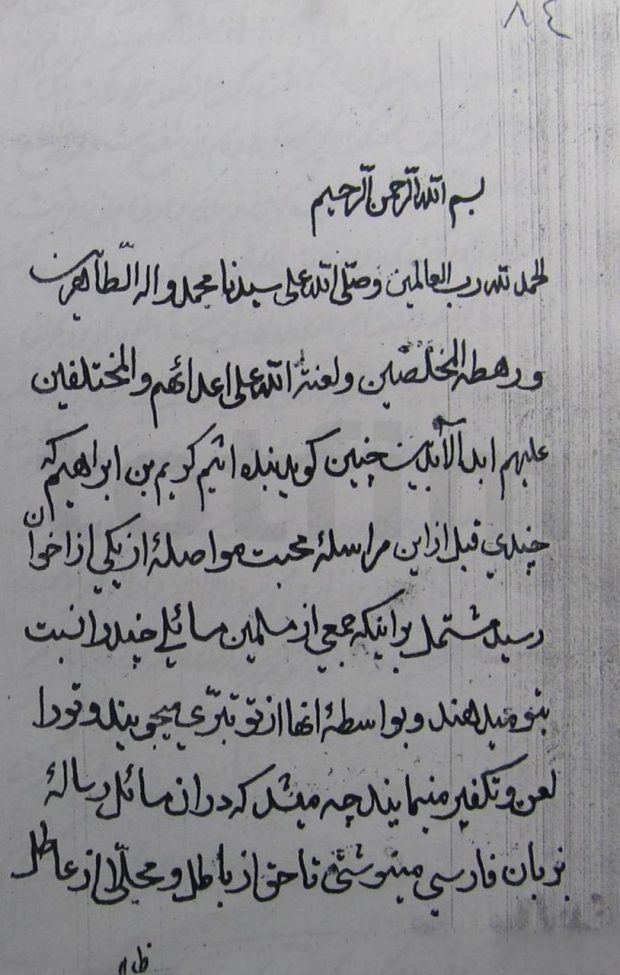 ٨٤
بسم الله الرحمن الرحيم
الحمد لله رب العالمين وصلّى الله على سيدنا محمد واله الطّاهرين
ورهطه المخلصين ولعنة الله على اعدائهم والمختلفين
عليهم ابد الآبدين چنين كويد بنده اثيم كريم بن ابراهيم كه
چندي قبل از اين مراسلهٔ محبت مواصلهٔ از يكي از اخوان
رسيد مشتمل بر اينكه جمعي از مسلمين مسائلي چند را نسبت
بتو ميدهند و بواسطهٔ انها از تو تبرّي ميجويند و تو را
لعن و تكفير مينمايند چه ميشد كه در ان مسائل رسالهٔ
بزبان فارسي مينوشتي تا حق از باطل و محلّى از عاطل